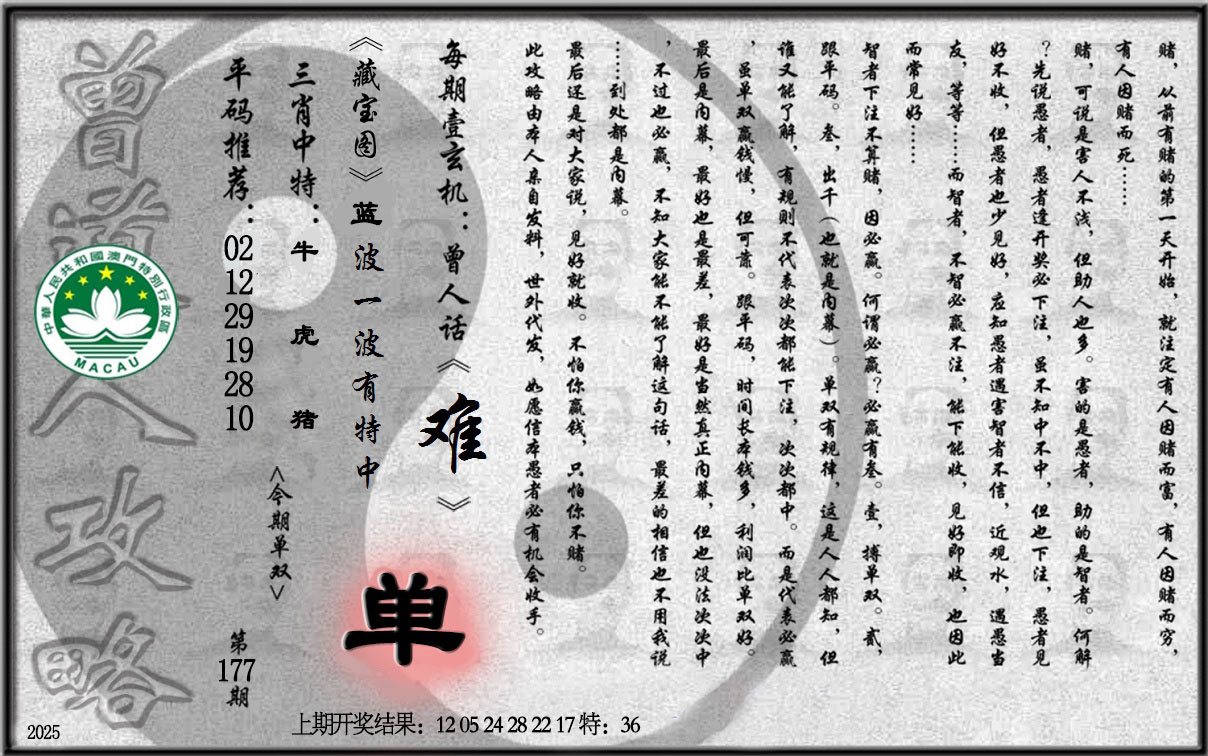 赌，从前有赌的第一天开始，就注定有人因赌而富，有人因赌而穷，
有人因赌而死……
赌，可说是害人不浅，但助人也多。害的是愚者，助的是智者。何解
？先说愚者，愚者逢开奖必下注，虽不知中不中，但也下注，愚者见
好不收，但愚者也少见好，应知愚者遇害智者不信，近观水，遇愚当
友，等等……而智者，不智必赢不注，能下能收，见好即收，也因此
而常见好……
智者下注不算赌，因必赢。何谓必赢？必赢有叁。壹，搏单双。贰，
跟平码。叁，出千（也就是内幕）。单双有规律，这是人人都知，但
谁又能了解，有规则不代表次次都能下注，次次都中。而是代表必赢
，虽单双赢钱慢，但可靠。跟平码，时间长本钱多，利润比单双好。
最后是内幕，最好也是最差，最好是当然真正内幕，但也没法次次中
，不过也必赢，不知大家能不能了解这句话，最差的相信也不用我说
……到处都是内幕。
最后还是对大家说，见好就收。不怕你赢钱，只怕你不赌。
此攻略由本人亲自发料，世外代发，如愿信本愚者必有机会收手。
每期壹玄机：曾人话《难》
《藏宝图》蓝波一波有特中
三肖中特：牛 虎 猪
<今期单双>
单
平码推荐：02 12 29 19 28 10
第177期
曾道人攻略
中華人民共和國澳門特別行政區
MACAU
上期开奖结果：12 05 24 28 22 17 特：36
2025